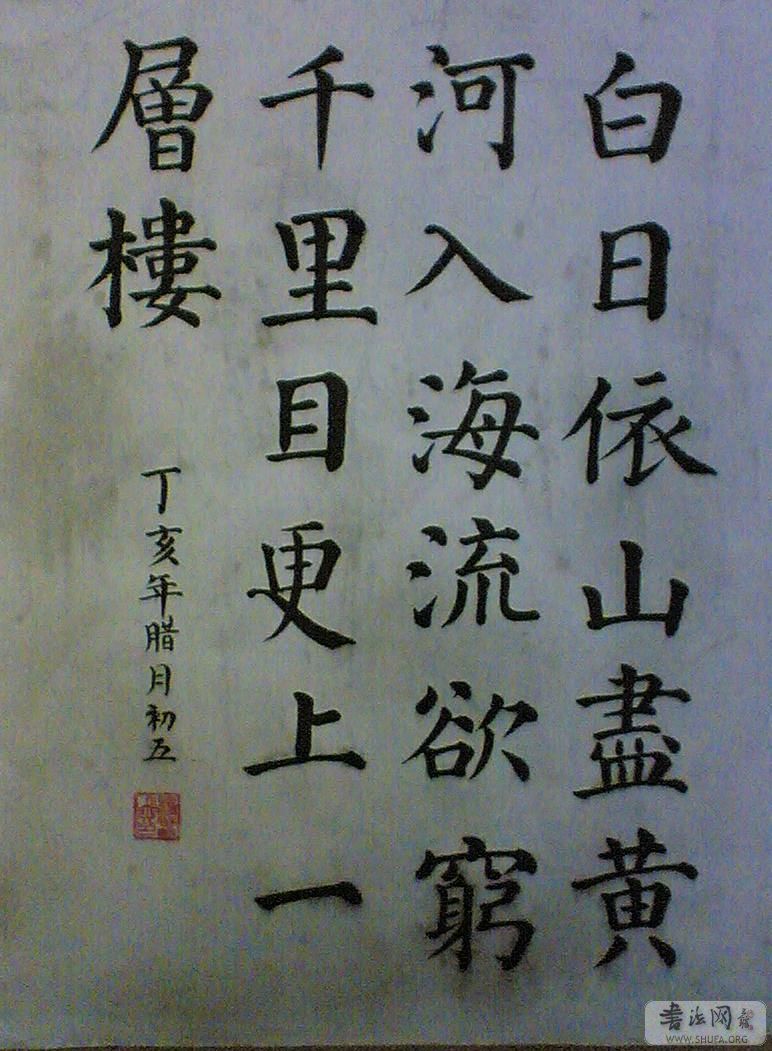 白日依山盡黄
河入海流欲窮
千里目更上一
層樓
丁亥年腊月初五
書法网
WWW.SHUFA.ORG